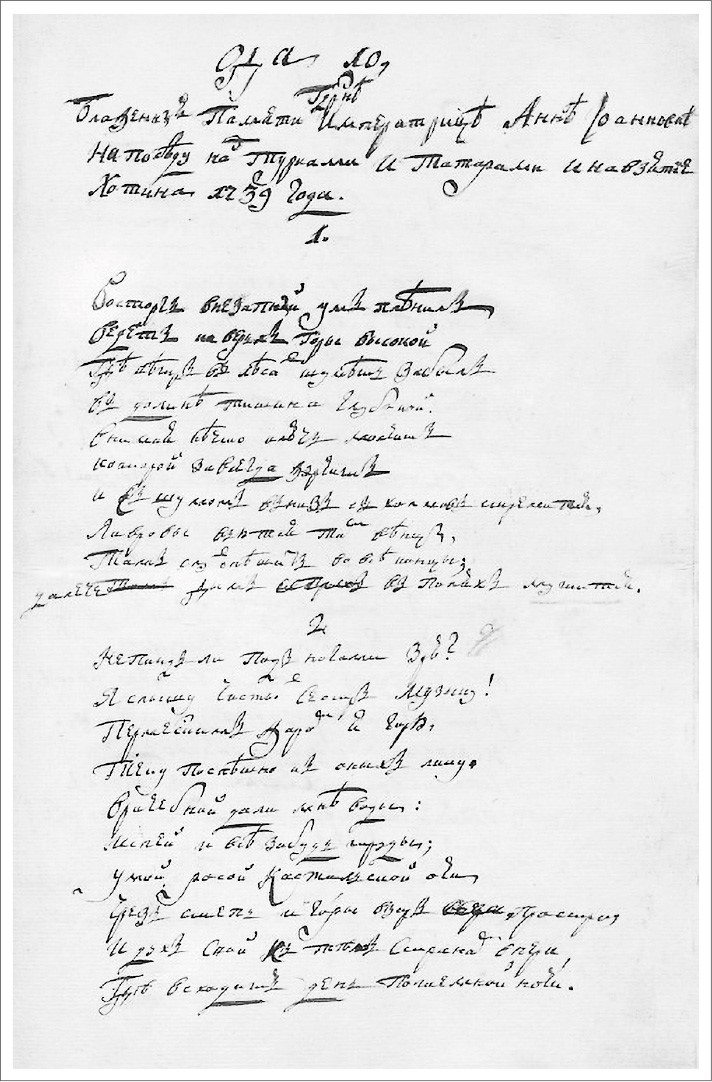 Ода 10,
Блаженныя Памяти Гдрнѣ Императрицѣ Аннѣ Іоанновнѣ
На побѣду над Турками и Татарами и на взятіе
Хотина 1739 Года.
1.
Восторгъ внезапный умъ плѣнилъ
Ведетъ на верьхъ Горы высокой
Гдѣ вѣтръ въ лѣсахъ шумѣть забылъ
Въ долинѣ тишина глубокой.
Внимая нѣчто ключь молчитъ
которой завсегда журчитъ
И съ шумомъ внизъ съ холмовъ стремится,
Лавровы вьются тамъ вѣнцы,
Тамъ слухъ спѣшитъ во всѣ концы;
далече дымъ въ поляхъ курится.
2
Не Пиндъ ли подъ ногами зрю?
Я слышу чистыхъ Сестръ Музыку!
Пермесскимъ жаромъ я горю,
Теку поспѣшно къ оныхъ лику.
Врачебной дали мнѣ воды:
Испей и всѣ забудь труды;
Умой росой Кастальской очи,
Чрезъ степь и горы взоръ простри,
И духъ свой къ тѣмъ Странамъ впери,
Гдѣ всходитъ день по темной ночи.